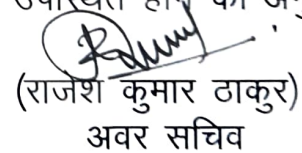 (राजेश कुमार ठाकुर)
अवर सचिव